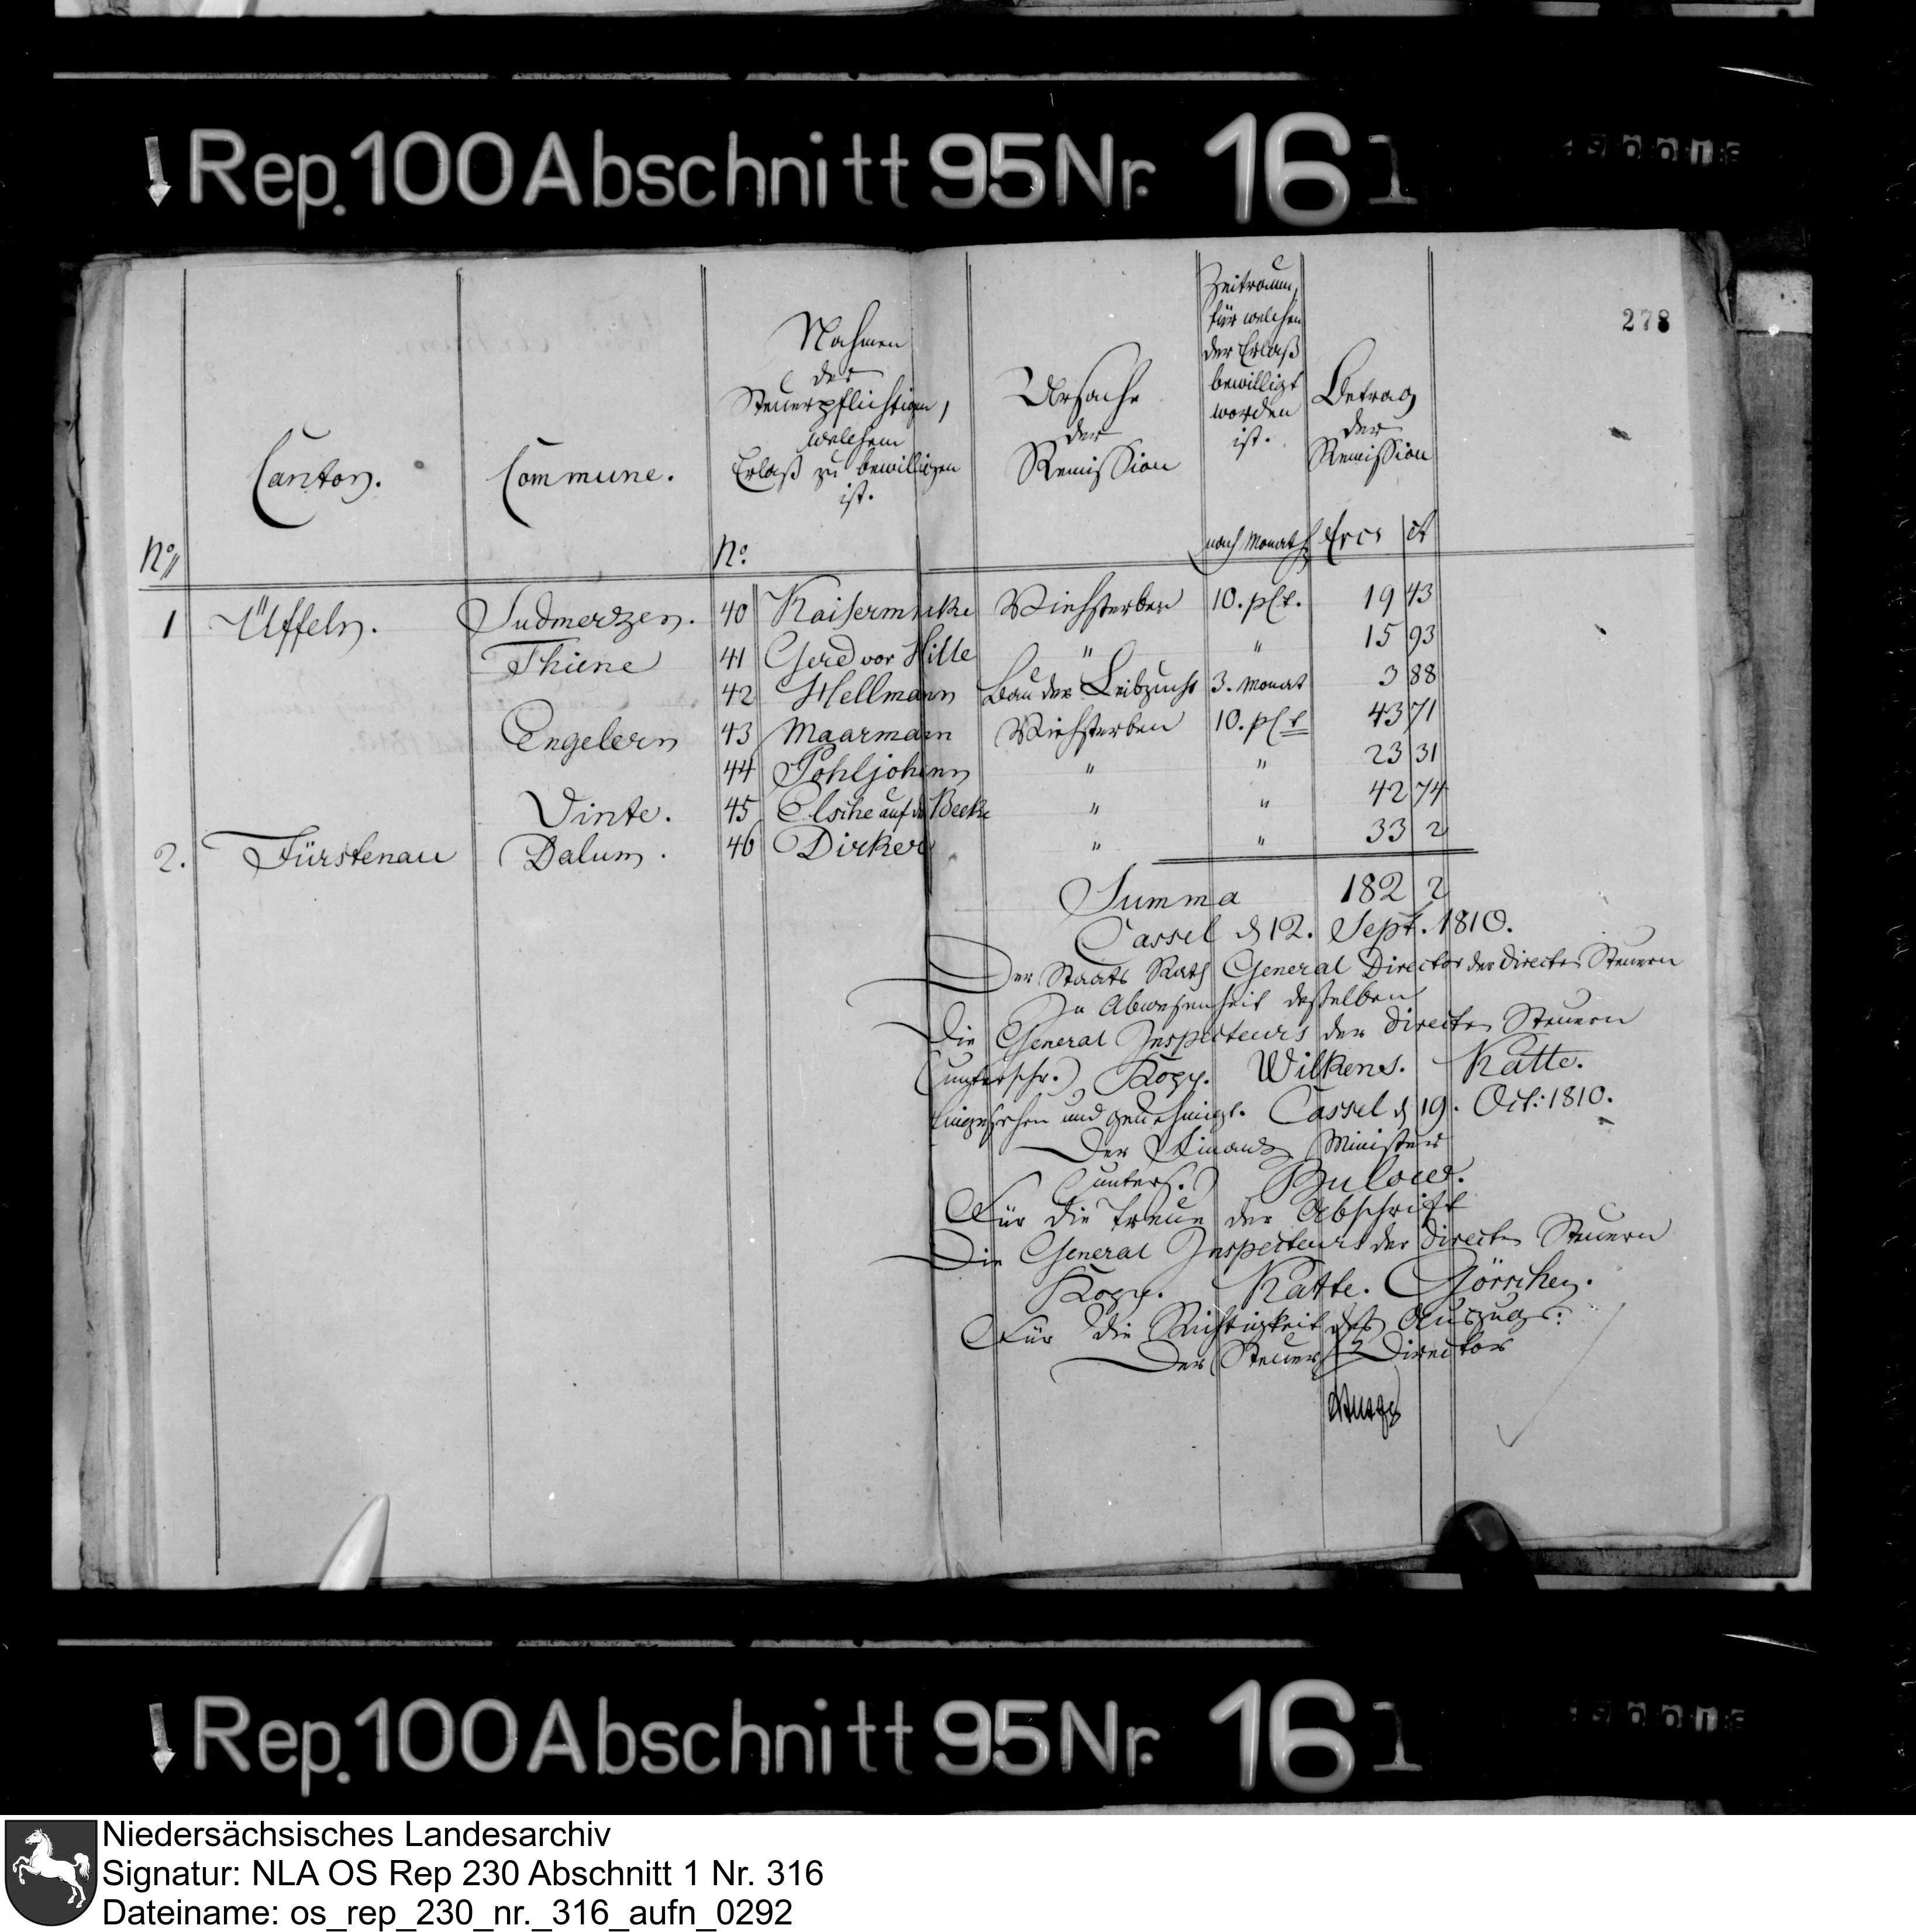 Rep. 100 Abschnitt 95 Nr. 161
278
Canton.
Commune.
Nahmen
der
Steuerpflichtigen,
welchem
Erlaß zu bewilligen
ist.
Ursache
der
Remission
Zeitraum,
für welchen
der Erlaß
bewilligt
worden
ist.
Betrag
der
Remission
No No. nach Monath Frcs ct
1 Üffeln. Sudmerzen. 40 Kaisermücke Viehsterben 10. pCt. 19 43
Thiene 41 Gerd vor Hille " " 15 93
42 Hellmann Bau der Leibzucht 3. Monat 3 88
Engelern 43 Maarmann Viehsterben 10. pCt 43 71
44 Pohljohann " " 23 31
Vinte. 45 Elsche auf der Beeke " " 42 74
2. Fürstenau Dalum. 46 Dirker " " 33 2
Summa 182 2
Cassel d 12. Sept. 1810.
Der Staats Rath General Director der directen Steuern
In Abwesenheit desselben
Die General Inspecteurs der directen Steuern
(unterschr.) Kopp. Wilkens. Katte.
Eingesehen und genehmigt. Cassel d 19. Oct: 1810.
Der Finanz Minister
(unters.) Bulow.
Für die Treue der Abschrift
Die General Inspecteurs der directen Steuern
Kopp. Katte. Görschen.
Für die Richtigkeit des Auszugs:
Der Steuer Director
Rep. 100 Abschnitt 95 Nr. 161
Niedersächsisches Landesarchiv
Signatur: NLA OS Rep 230 Abschnitt 1 Nr. 316
Dateiname: os_rep_230_nr._316_aufn_0292